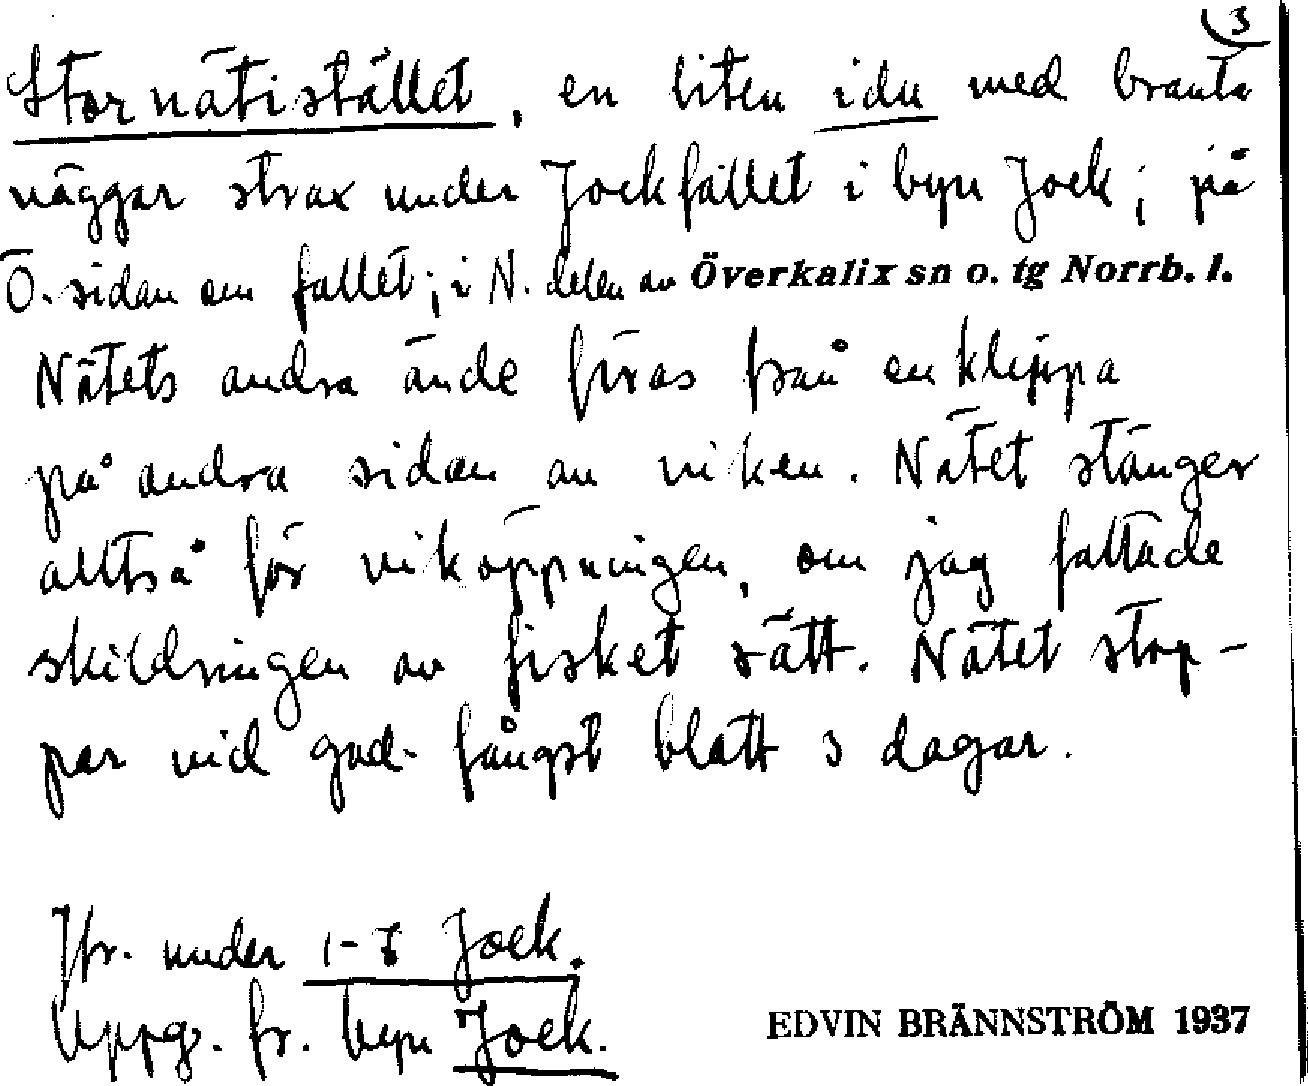 3
Stornätistället, en liten idu med branta
väggar strax under Jockfallet i byn Jock; på
Ö. sidan om fallet; i N. delen av Överkalix sn o. tg Norrb. l.
Nätets andra ände föras från en klippa
på andra sidan av viken. Nätet stänger
alltså för viköppningen, om jag fattade
skildringen av fisket rätt. Nätet stop-
par vid god fångst blott 3 dagar.
Jfr. under 1-7 Jock.
Uppg. fr. byn Jock.
EDVIN BRÄNNSTRÖM 1937